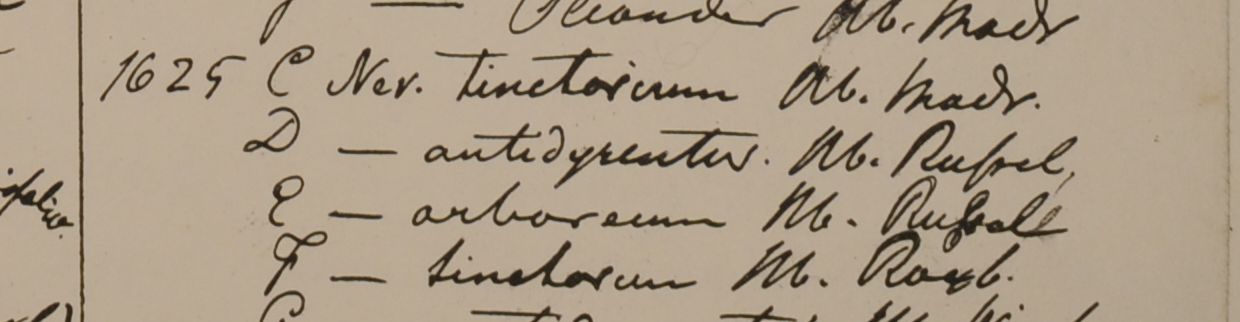 — Oleander Hb. Madr
1625 C Ner. tinctorium Hb. Madr.
D — antidysenter. Hb. Russel,
E — arboreum Hb. Russell
F — tinctorum Hb. Roxb.